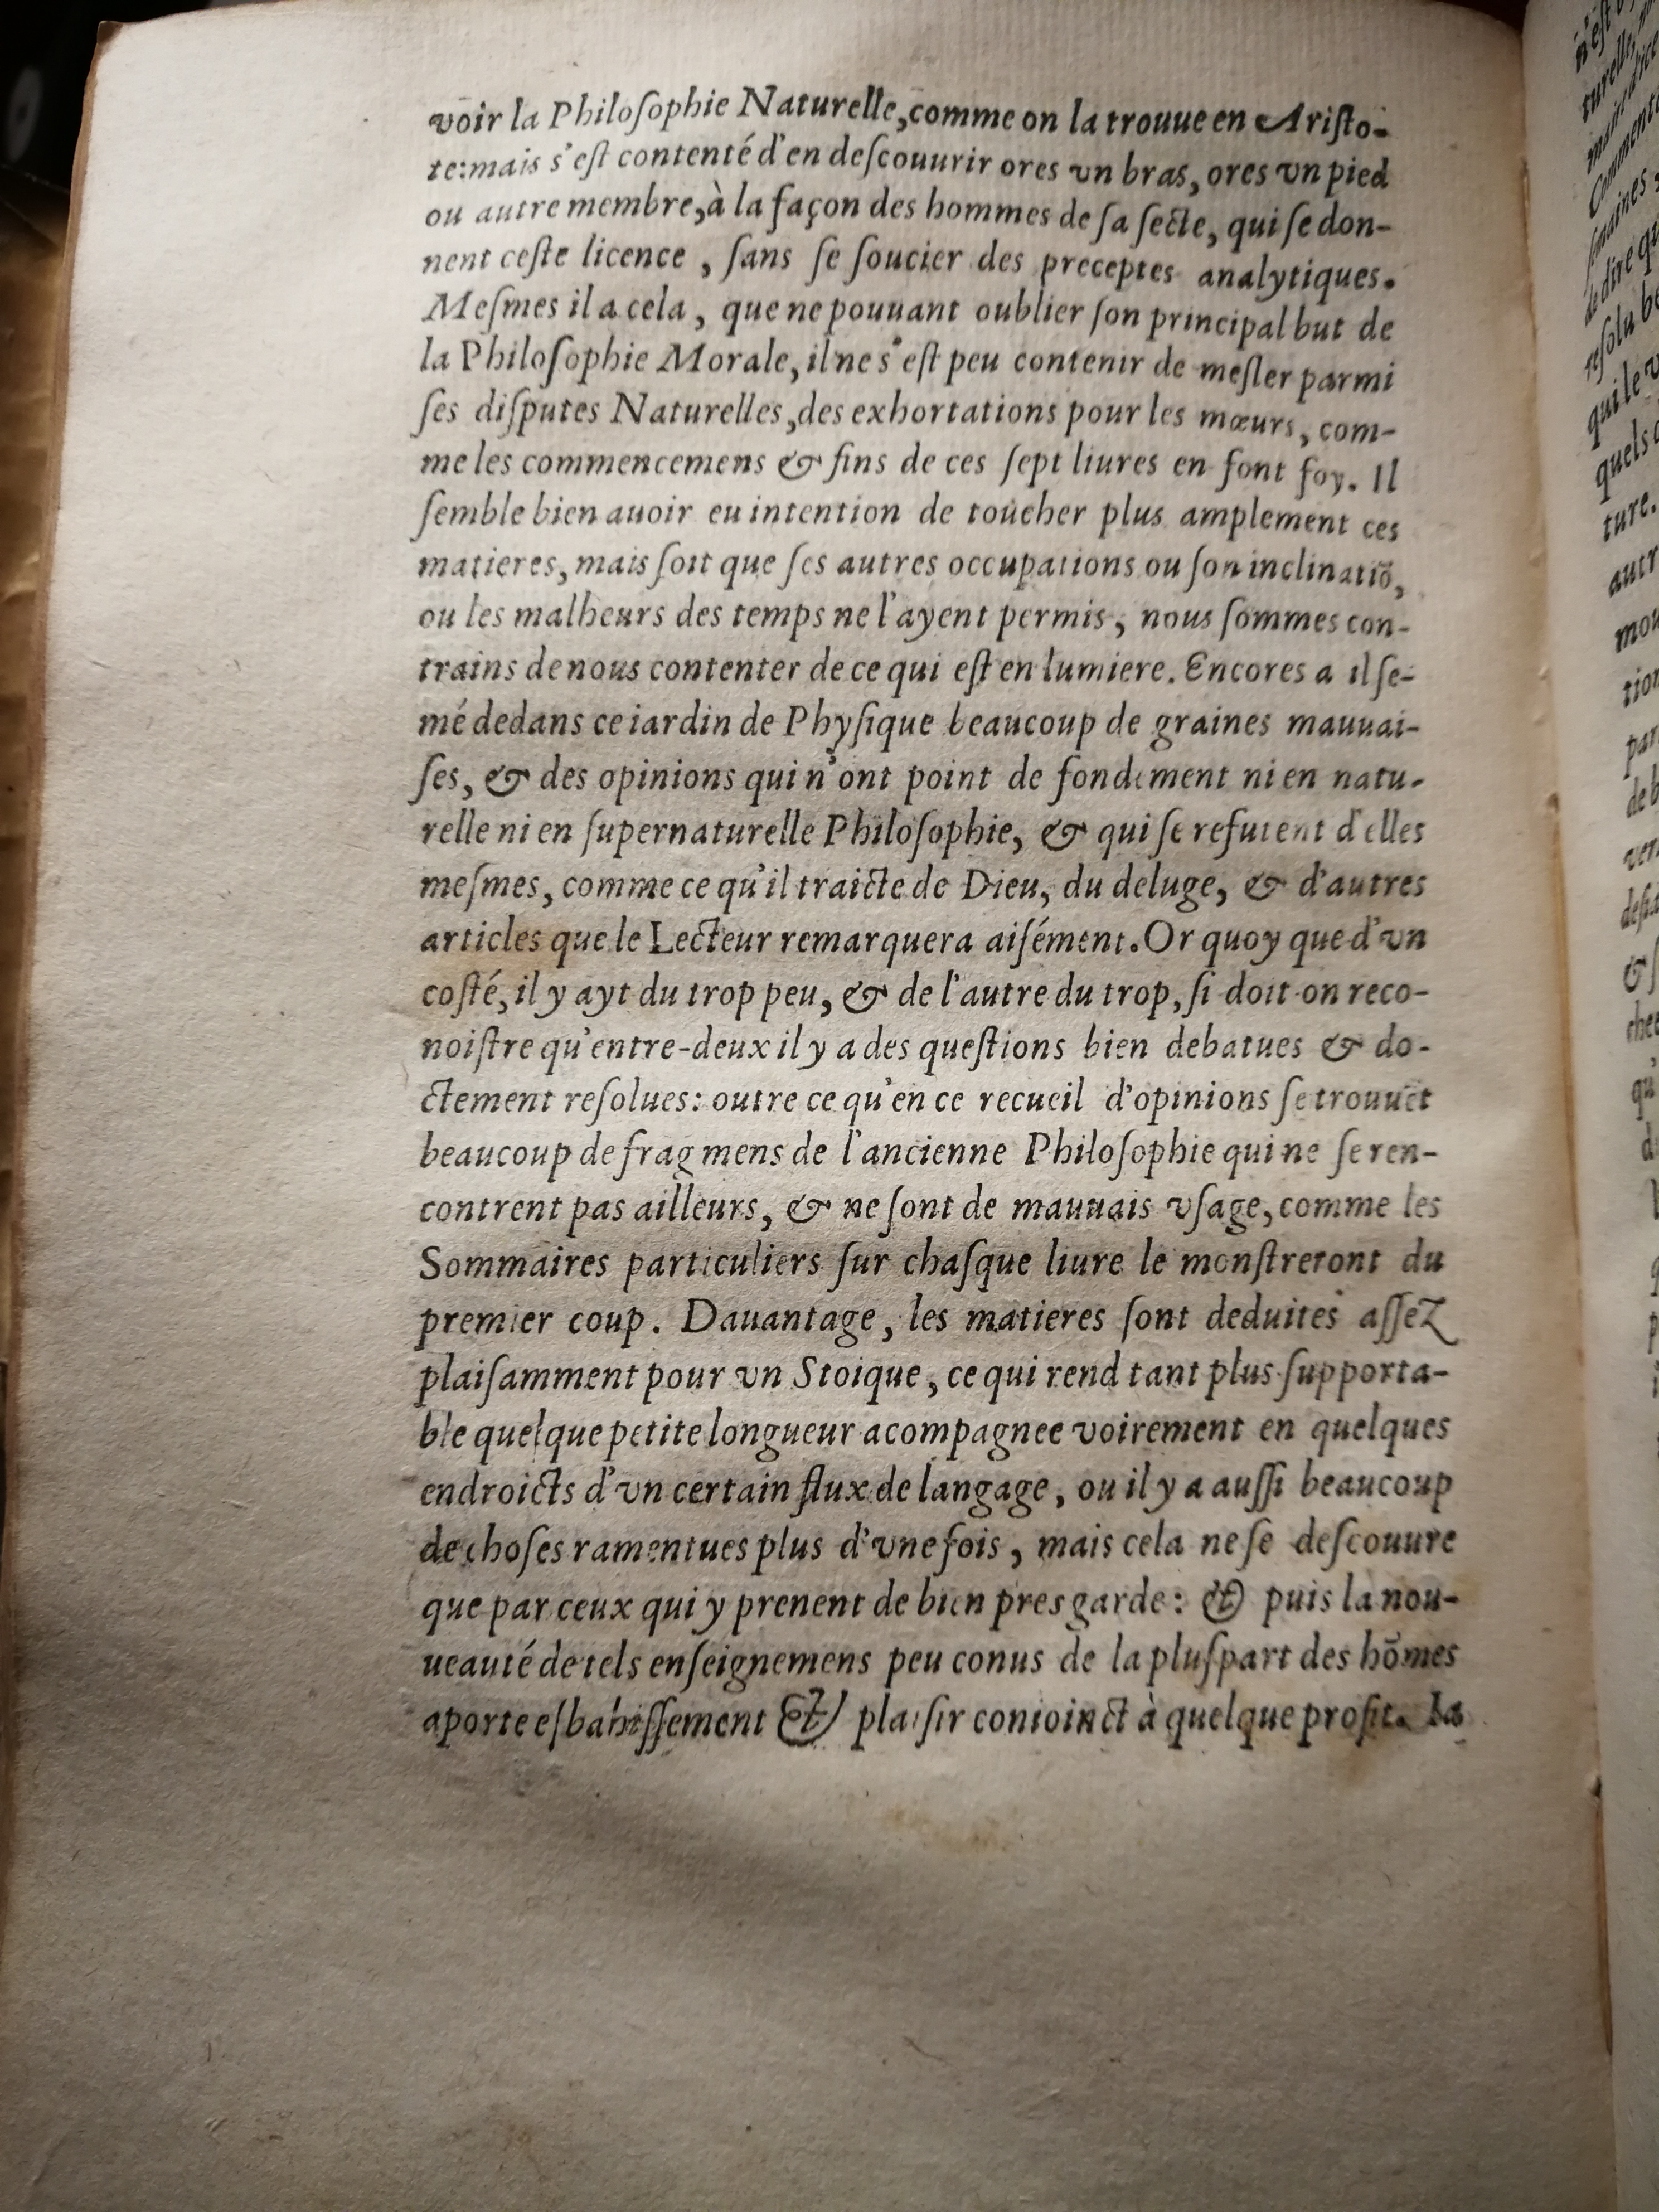 voir la Philoſophie Naturelle, comme on la trouue en Ariſto-
te: mais s'eſt contenté d'en deſcouurir ores vn bras, ores vn pied
ou autre membre, à la façon des hommes de ſa ſecte, qui ſe don-
nent ceſte licence, ſans ſe ſoucier des preceptes analytiques.
Meſmes il a cela, que ne pouuant oublier ſon principal but de
la Philoſophie Morale, il ne s'eſt peu contenir de meſler parmi
ſes diſputes Naturelles, des exhortations pour les mœurs, com-
me les commencemens & fins de ces ſept liures en font foy. Il
ſemble bien auoir eu intention de toucher plus amplement ces
matieres, mais ſoit que ſes autres occupations ou ſon inclinatiõ,
ou les malheurs des temps ne l'ayent permis, nous ſommes con-
trains de nous contenter de ce qui eſt en lumiere. Encores a il ſe-
mé dedans ce iardin de Phyſique beaucoup de graines mauuai-
ſes, & des opinions qui n'ont point de fondement ni en natu-
relle ni en ſupernaturelle Philoſophie, & qui ſe refutent d'elles
meſmes, comme ce qu'il traicte de Dieu, du deluge, & d'autres
articles que le Lecteur remarquera aiſément. Or quoy que d'vn
coſté, il y ayt du trop peu, & de l'autre du trop, ſi doit on reco-
noiſtre qu'entre-deux il y a des queſtions bien debatues & do-
ctement reſolues: outre ce qu'en ce recueil d'opinions ſe trouuẽt
beaucoup de fragmens de l'ancienne Philoſophie qui ne ſe ren-
contrent pas ailleurs, & ne ſont de mauuais vſage, comme les
Sommaires particuliers ſur chaſque liure le monſtreront du
premier coup. Dauantage, les matieres ſont deduites aſſez
plaiſamment pour vn Stoique, ce qui rend tant plus ſupporta-
ble quelque petite longueur acompagnee voirement en quelques
endroicts d'vn certain flux de langage, ou il y a auſſi beaucoup
de choſes ramentues plus d'vne fois, mais cela ne ſe deſcouure
que par ceux qui y prenent de bien pres garde: & puis la nou-
ueauté de tels enſeignemens peu conus de la pluſpart des hõmes
aporte eſbahiſſement & plaiſir conioinct à quelque profit. La